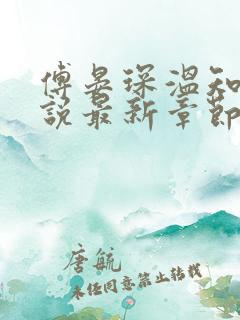 傅晏琛温知
说最新章节
唐毓
未经同意禁止转载